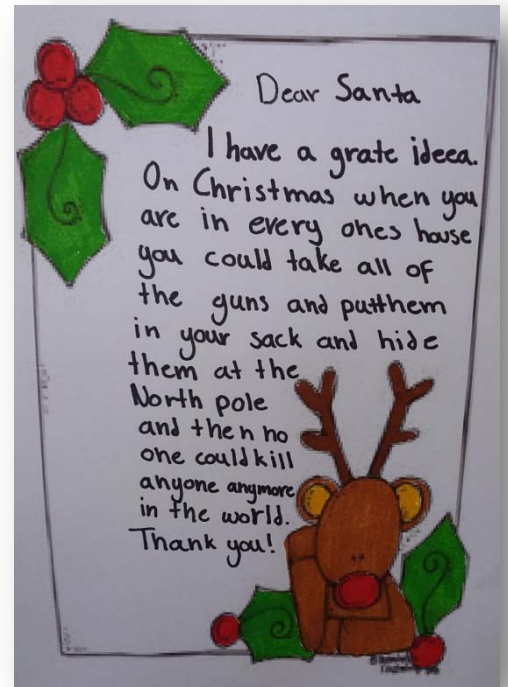 Dear Santa
I have a grate ideea.
On Christmas when you
are in every ones house
you could take all of
the guns and putthem
in your sack and hide
them at the
North pole
and then no
one could kill
anyone anymore
in the world.
Thank you!